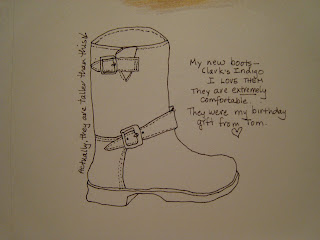 Actually, they are taller than this!
My new boots—
Clark's Indigo
I LOVE THEM
They are extremely
comfortable.
They were my birthday
gift from Tom.